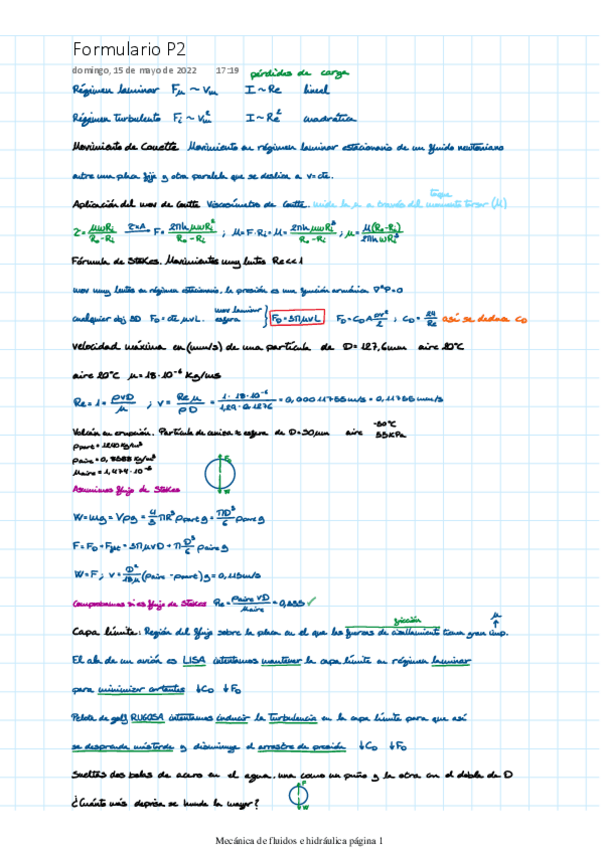 Formulario P2
domingo, 15 de mayo de 2022 17:19 pérdidas de carga
Régimen laminar Fμ ~ Vm I ~ Re lineal
Régimen turbulento Fi ~ Vm² I ~ Re² cuadrática
Movimiento de Couette Movimiento en régimen laminar estacionario de un fluido newtoniano
entre una placa fija y otra paralela que se desliza a v=cte.
torque
Aplicación del mov de Coutte Viscosímetro de Coutte. mide la μ a través del momento torsor (M)
Fórmula de Stokes. Movimientos muy lentos Re<<1
mov muy lentos en régimen estacionario. la presión es una función armónica ∇²P=0
cualquier obj 3D F_D = cte μvL. mov laminar esfera F_D = 3πμvL F_D = C_D A ρv²/2 ; C_D = 24/Re así se deduce C_D
velocidad máxima en (mm/s) de una partícula de D = 127,6mm aire 20ºC
aire 20ºC μ = 18·10⁻⁶ Kg/ms
Re = 1 = ρvD/μ ; v = Re μ/ρD = 1·18·10⁻⁶/1,29·0,1276 = 0,00011755 m/s = 0,11755 mm/s
Volcán en erupción. Partícula de ceniza ≈ esfera de D = 50μm aire -50ºC 55KPa
ρpart = 1240 Kg/m³
ρaire = 0,8588 Kg/m³
μaire = 1,474·10⁻⁵
Asumimos flujo de Stokes
W = mg = Vρg = 4/3 πR³ ρpart g = πD³/6 ρpart g
F = F_D + Fflt = 3πμvD + π D³/6 ρaire g
W = F ; v = D²/18μ (ρaire - ρpart) g = 0,115m/s
Comprobamos si es flujo de Stokes Re = ρaire VD/μaire = 0,335 ✓
fricción μ
Capa límite: Región del flujo sobre la placa en el que las fuerzas de cizallamiento tienen gran imp.
El ala de un avión es LISA intentamos mantener la capa límite en régimen laminar
para minimizar cortantes ↓C_D ↓F_D
Pelota de golf RUGOSA intentamos inducir la turbulencia en la capa límite para que así
se desprenda más tarde y disminuye el arrastre de presión ↓C_D ↓F_D
Sueltas dos bolas de acero en el agua, una como un puño y la otra con el doble de D
¿Cuánto más deprisa se hunde la mayor?
Mecánica de fluidos e hidráulica página 1